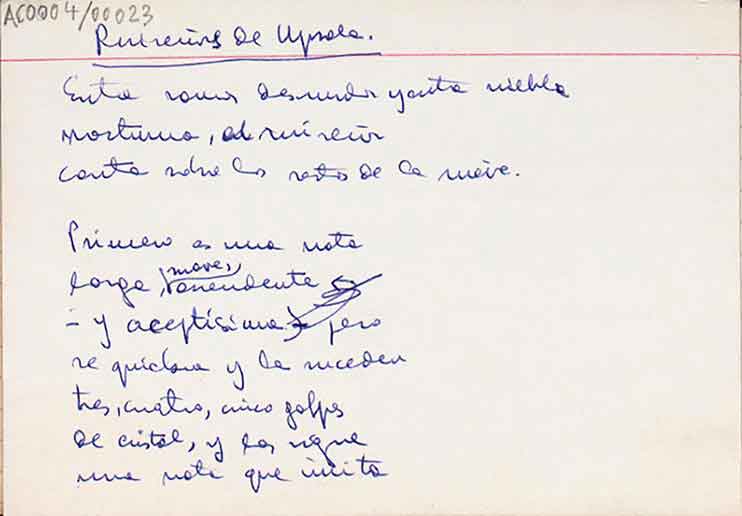 AC0004/00023
Ruiseñor de Upsala.
Entre ramas desnudas y entre niebla
nocturna, el ruiseñor
canta sobre los restos de la nieve.
Primero es una nota
larga, suave, ascendente
- y pero
se quiebra y la suceden
tres, cuatro, cinco golpes
de cristal, y los sigue
una nota que imita